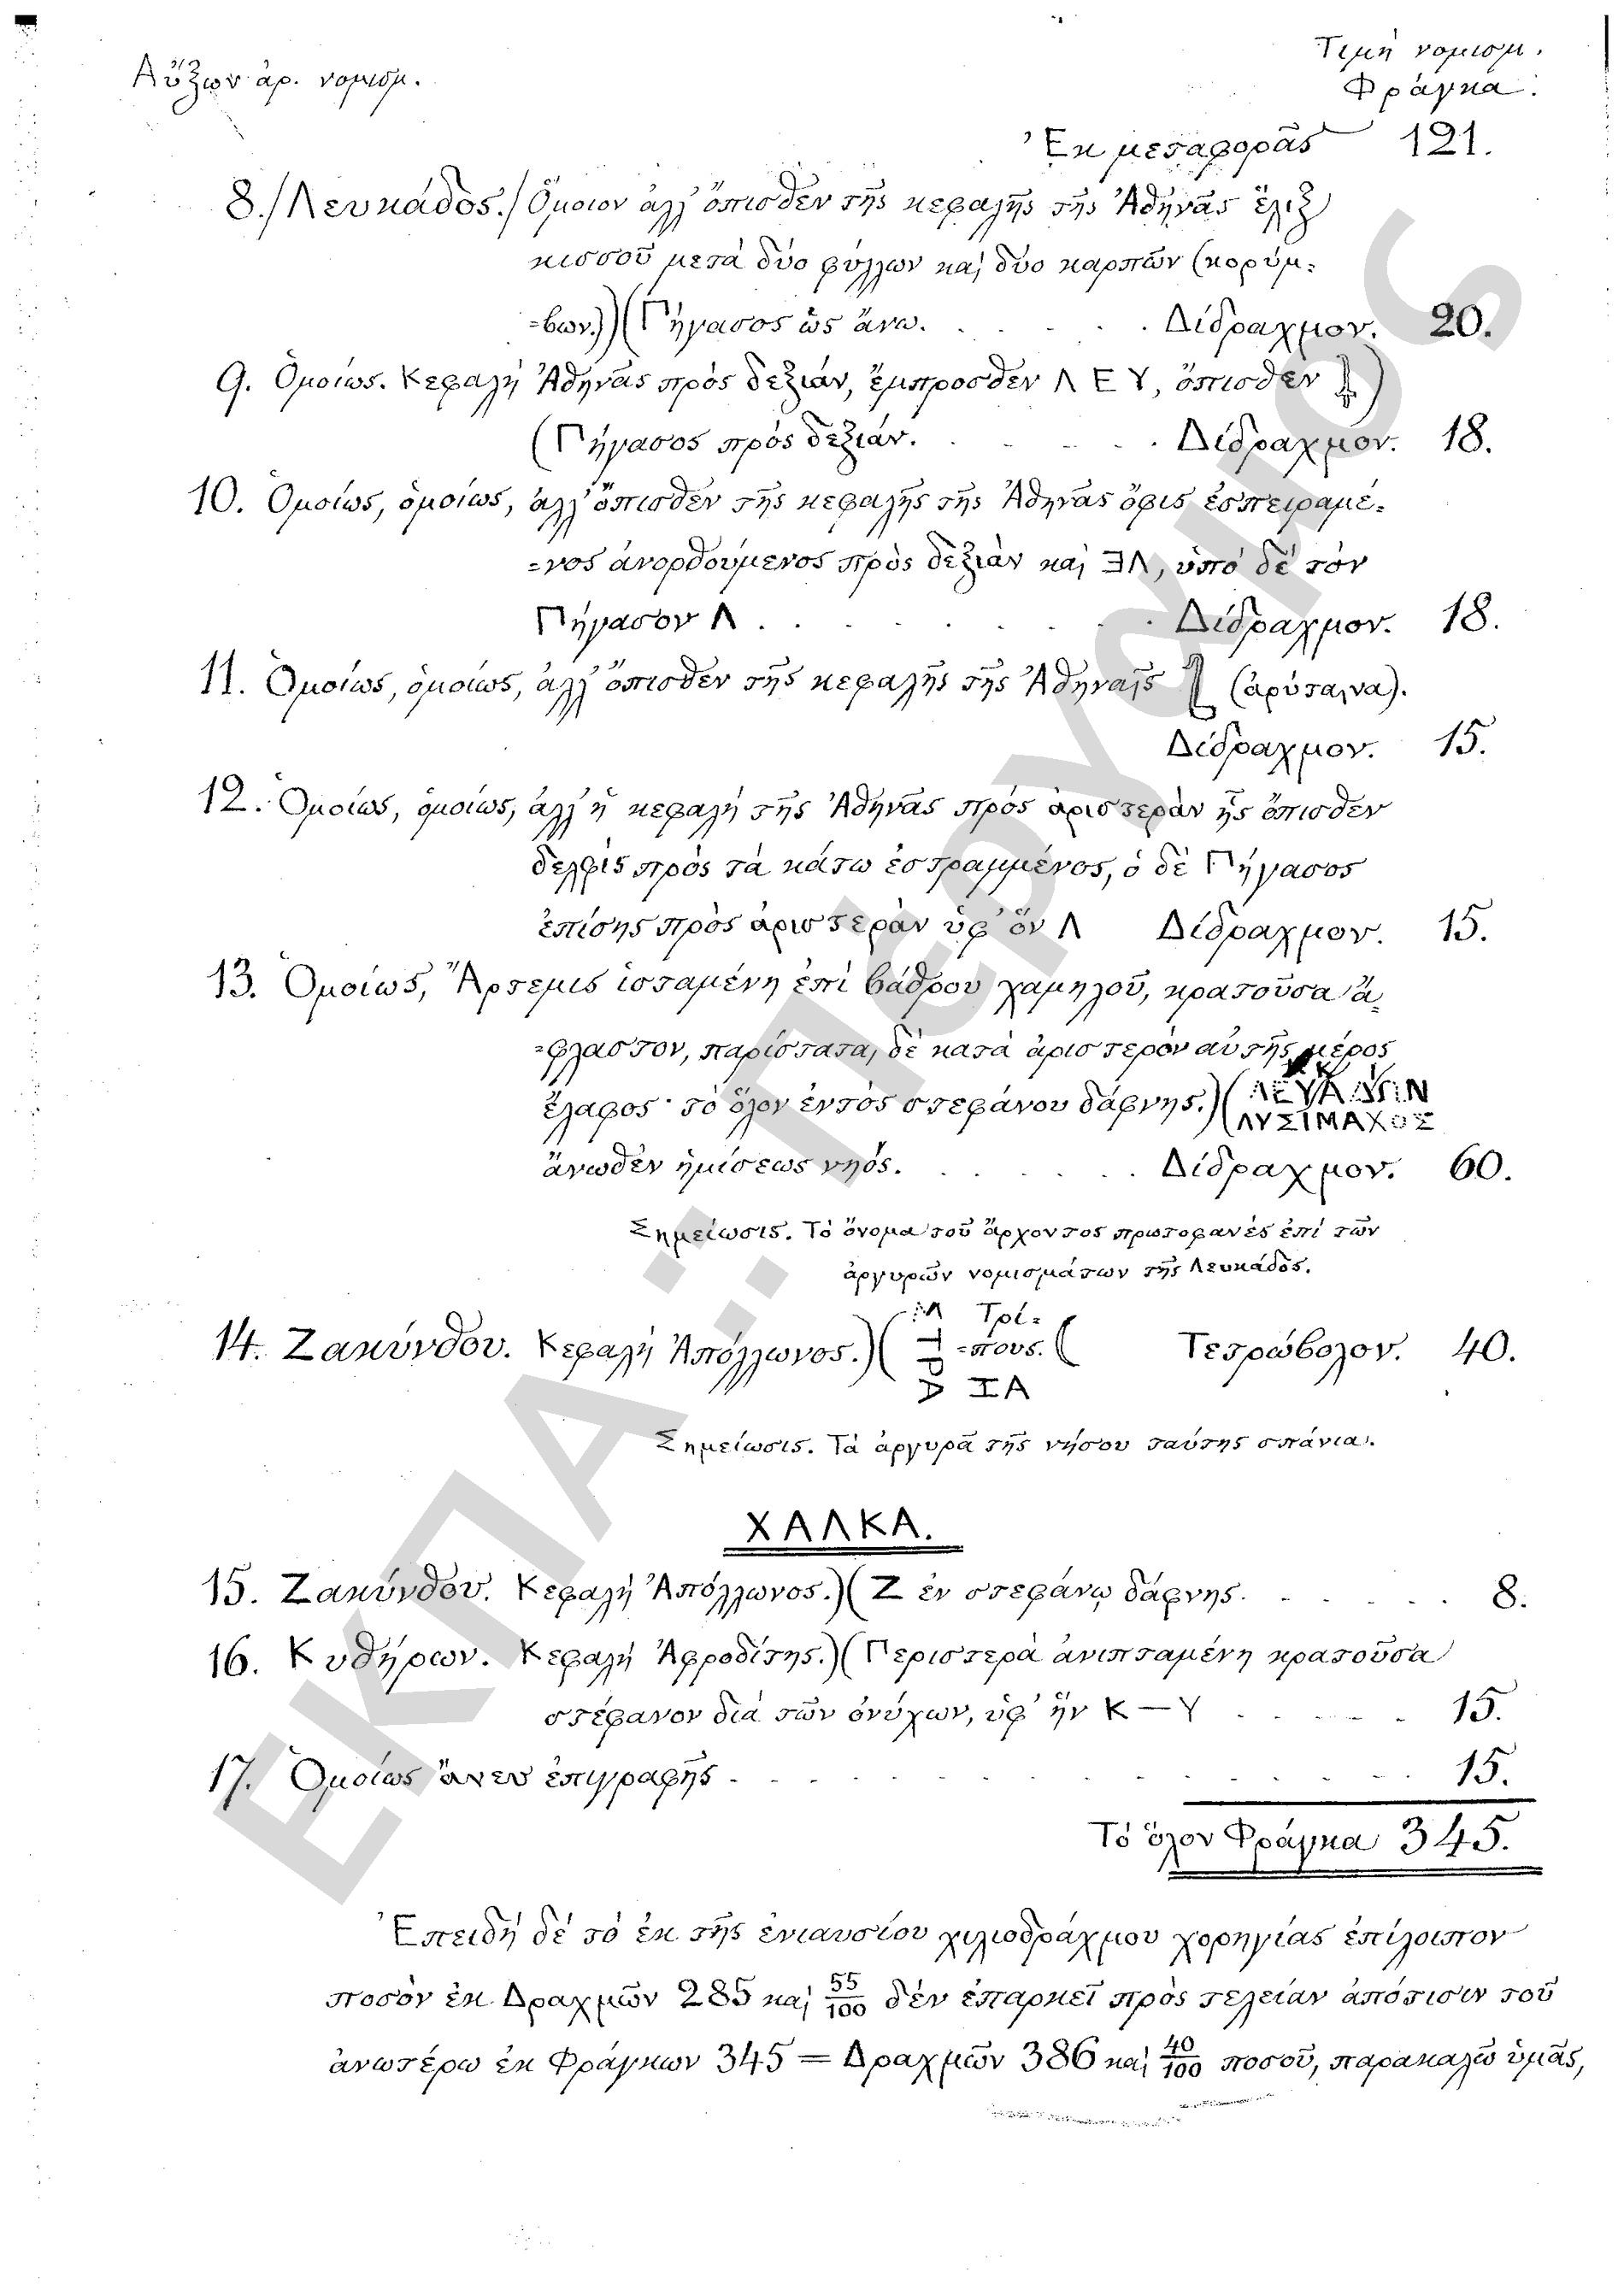 Αὔξων ἀρ. νομισμ.
Τιμὴ νομισμ.
Φράγκα.
Ἐκ μεταφορᾶς 121.
8./Λευκάδος./Ὅμοιον ἀλλ' ὄπισθεν τῆς κεφαλῆς τῆς Ἀθηνᾶς ἕλιξ
κισσοῦ μετὰ δύο φύλλων καὶ δύο καρπῶν (κορύμ=
=βων.))(Πήγασος ὡς ἄνω. . . . . . Δίδραχμον. 20.
9. Ὁμοίως. Κεφαλὴ Ἀθηνᾶς πρὸς δεξιάν, ἔμπροσθεν ΛΕΥ, ὄπισθεν )
(Πήγασος πρὸς δεξιάν. . . . . . Δίδραχμον. 18.
10. Ὁμοίως, ὁμοίως, ἀλλ' ὄπισθεν τῆς κεφαλῆς τῆς Ἀθηνᾶς ὄφις ἐσπειραμέ=
=νος ἀνορθούμενος πρὸς δεξιὰν καὶ ƎΛ, ὑπὸ δὲ τὸν
Πήγασον Λ . . . . . . . Δίδραχμον. 18.
11. Ὁμοίως, ὁμοίως, ἀλλ' ὄπισθεν τῆς κεφαλῆς τῆς Ἀθηνᾶς (ἀρύταινα).
Δίδραχμον. 15.
12. Ὁμοίως, ὁμοίως, ἀλλ' ἡ κεφαλὴ τῆς Ἀθηνᾶς πρὸς ἀριστερὰν ἧς ὄπισθεν
δελφὶς πρὸς τὰ κάτω ἐστραμμένος, ὁ δὲ Πήγασος
ἐπίσης πρὸς ἀριστερὰν ὑφ' ὃν Λ Δίδραχμον. 15.
13. Ὁμοίως, Ἄρτεμις ἱσταμένη ἐπὶ βάθρου χαμηλοῦ, κρατοῦσα ἄ=
=φλαστον, παρίσταται δὲ κατὰ ἀριστερὸν αὐτῆς μέρος
ἔλαφος· τὸ ὅλον ἐντὸς στεφάνου δάφνης.)(ΛΕΥΚΑΔΙΩΝ
ΛΥΣΙΜΑΧΟΣ
ἄνωθεν ἡμίσεως νηός. . . . . . . Δίδραχμον. 60.
Σημείωσις. Τὸ ὄνομα τοῦ ἄρχοντος πρωτοφανὲς ἐπὶ τῶν
ἀργυρῶν νομισμάτων τῆς Λευκάδος.
14. Ζακύνθου. Κεφαλὴ Ἀπόλλωνος.)( Τρί=
=πους. ( Τετρώβολον. 40.
ΙΑ
Σημείωσις. Τὰ ἀργυρᾶ τῆς νήσου ταύτης σπάνια.
ΧΑΛΚΑ.
15. Ζακύνθου. Κεφαλὴ Ἀπόλλωνος.)(Ζ ἐν στεφάνῳ δάφνης. . . . . . 8.
16. Κυθήρων. Κεφαλὴ Ἀφροδίτης.)(Περιστερὰ ἀνιπταμένη κρατοῦσα
στέφανον διὰ τῶν ὀνύχων, ὑφ' ἣν Κ — Υ . . . . . 15.
17. Ὁμοίως ἄνευ ἐπιγραφῆς . . . . . . . . . . 15.
Τὸ ὅλον Φράγκα 345.
Ἐπειδὴ δὲ τὸ ἐκ τῆς ἐνιαυσίου χιλιοδράχμου χορηγίας ἐπίλοιπον
ποσὸν ἐκ Δραχμῶν 285 καὶ 55/100 δὲν ἐπαρκεῖ πρὸς τελείαν ἀπότισιν τοῦ
ἀνωτέρω ἐκ Φράγκων 345 = Δραχμῶν 386 καὶ 40/100 ποσοῦ, παρακαλῶ ὑμᾶς,